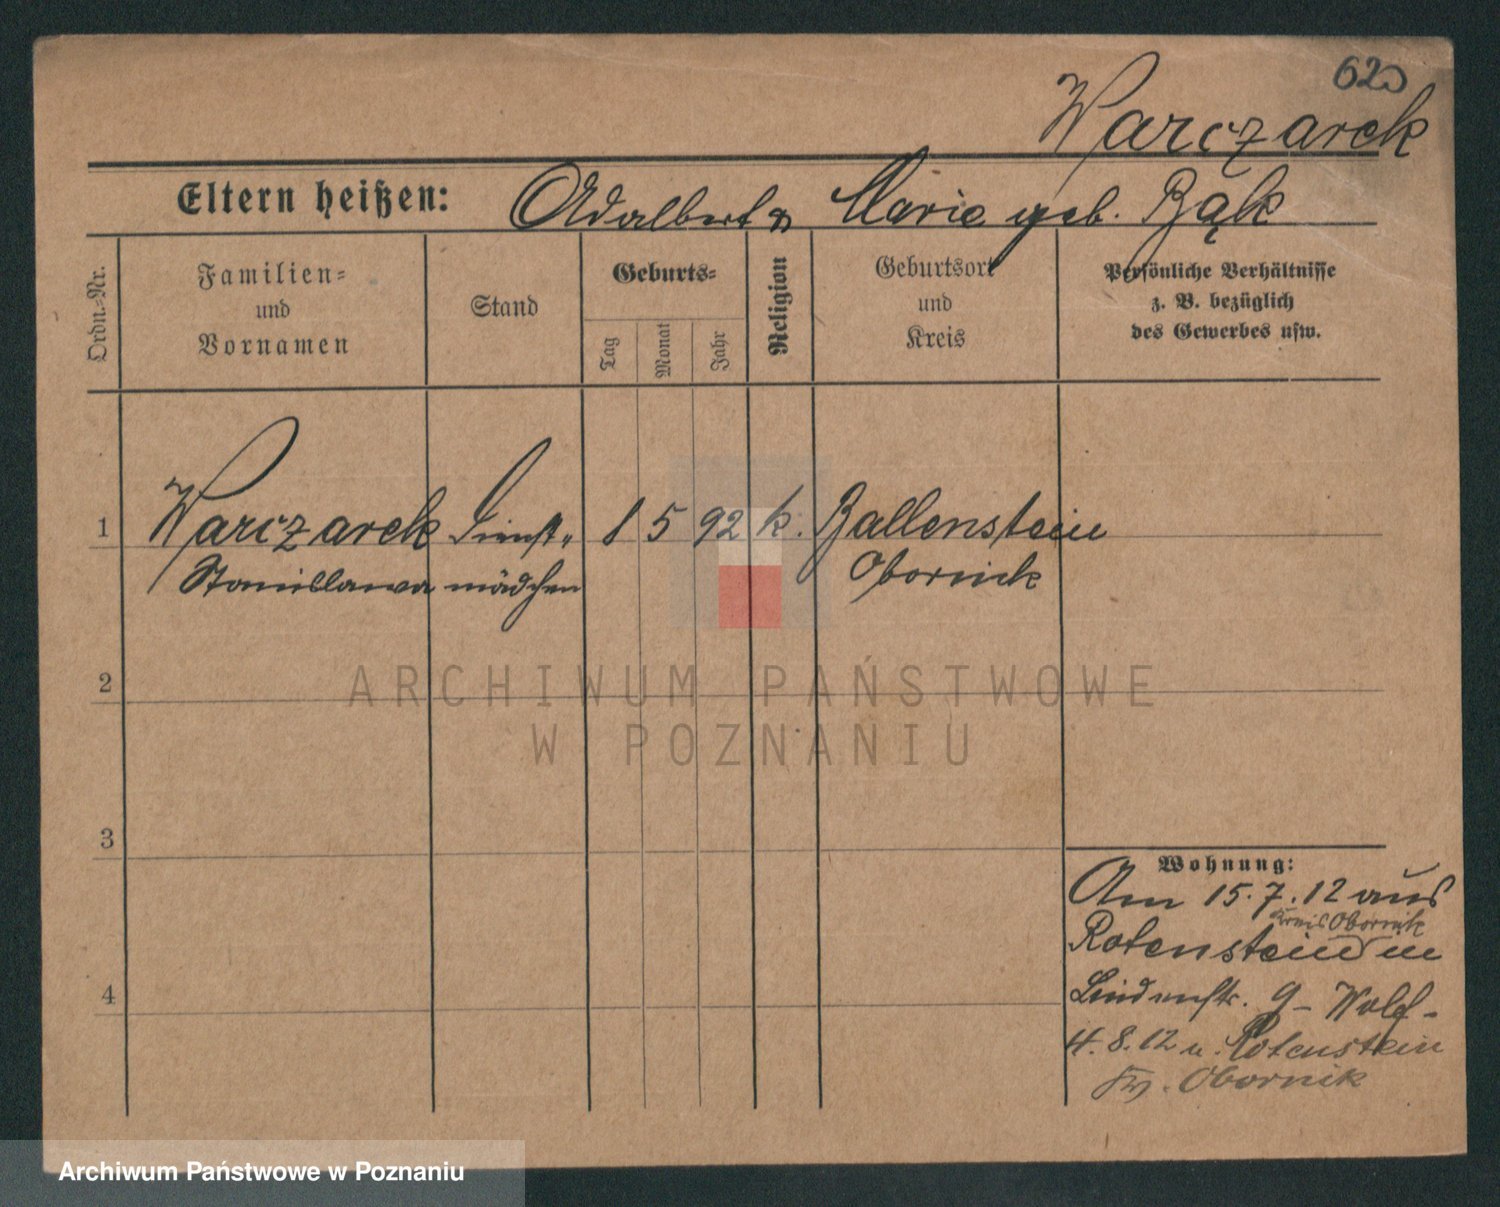 620
Warczarek
Eltern heißen: Adalbert u Marie geb. Bąk
Ordn.-Nr.
Familien- und Vornamen
Stand
Geburts-
Tag
Monat
Jahr
Religion
Geburtsort und Kreis
Persönliche Verhältnisse z. B. bezüglich des Gewerbes usw.
1 Warczarek Dienst- 8 5 92 k. Ballenstein
Stanislawa mädchen Obornik
2
3
4
Wohnung:
Am 15.7.12 aus
Kreis Obornik
Rotenstein in
Lindenstr. 9 - Wolf -
4.8.12 n. Rotenstein
Kr. Obornik
ARCHIWUM PAŃSTWOWE
W POZNANIU
Archiwum Państwowe w Poznaniu